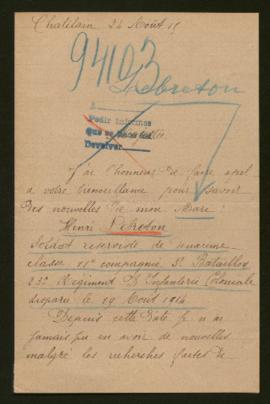 24 Août 15
94103
Lebreton
A
Pedir informes
que se hace los
Devolver
J'ai l'honneur de faire appel
a votre bienveillance pour savoir
des nouvelles de mon Mari
Henri Lebreton
Soldat réserviste de
classe 11e compagnie 3e Bataillon
23e Régiment d'Infanterie Coloniale
disparu le 19 Août 1914
Depuis cette date je n'ai
jamais pu en avoir de nouvelles
malgré les recherches faites de